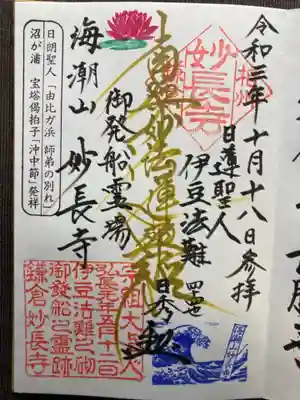 令和三年十月十八日参拝
相州
妙長寺
鎌倉
日蓮聖人
伊豆法難
南無妙法蓮華経
日秀
御発船霊場
海潮山 妙長寺
日朗聖人「由比ガ浜 師弟の別れ」
沼が浦 宝塔偈拍子「沖中節」発祥
宗祖大聖人
弘長元年五月十二日
伊豆法難之砌
御発船之霊跡
鎌倉妙長寺